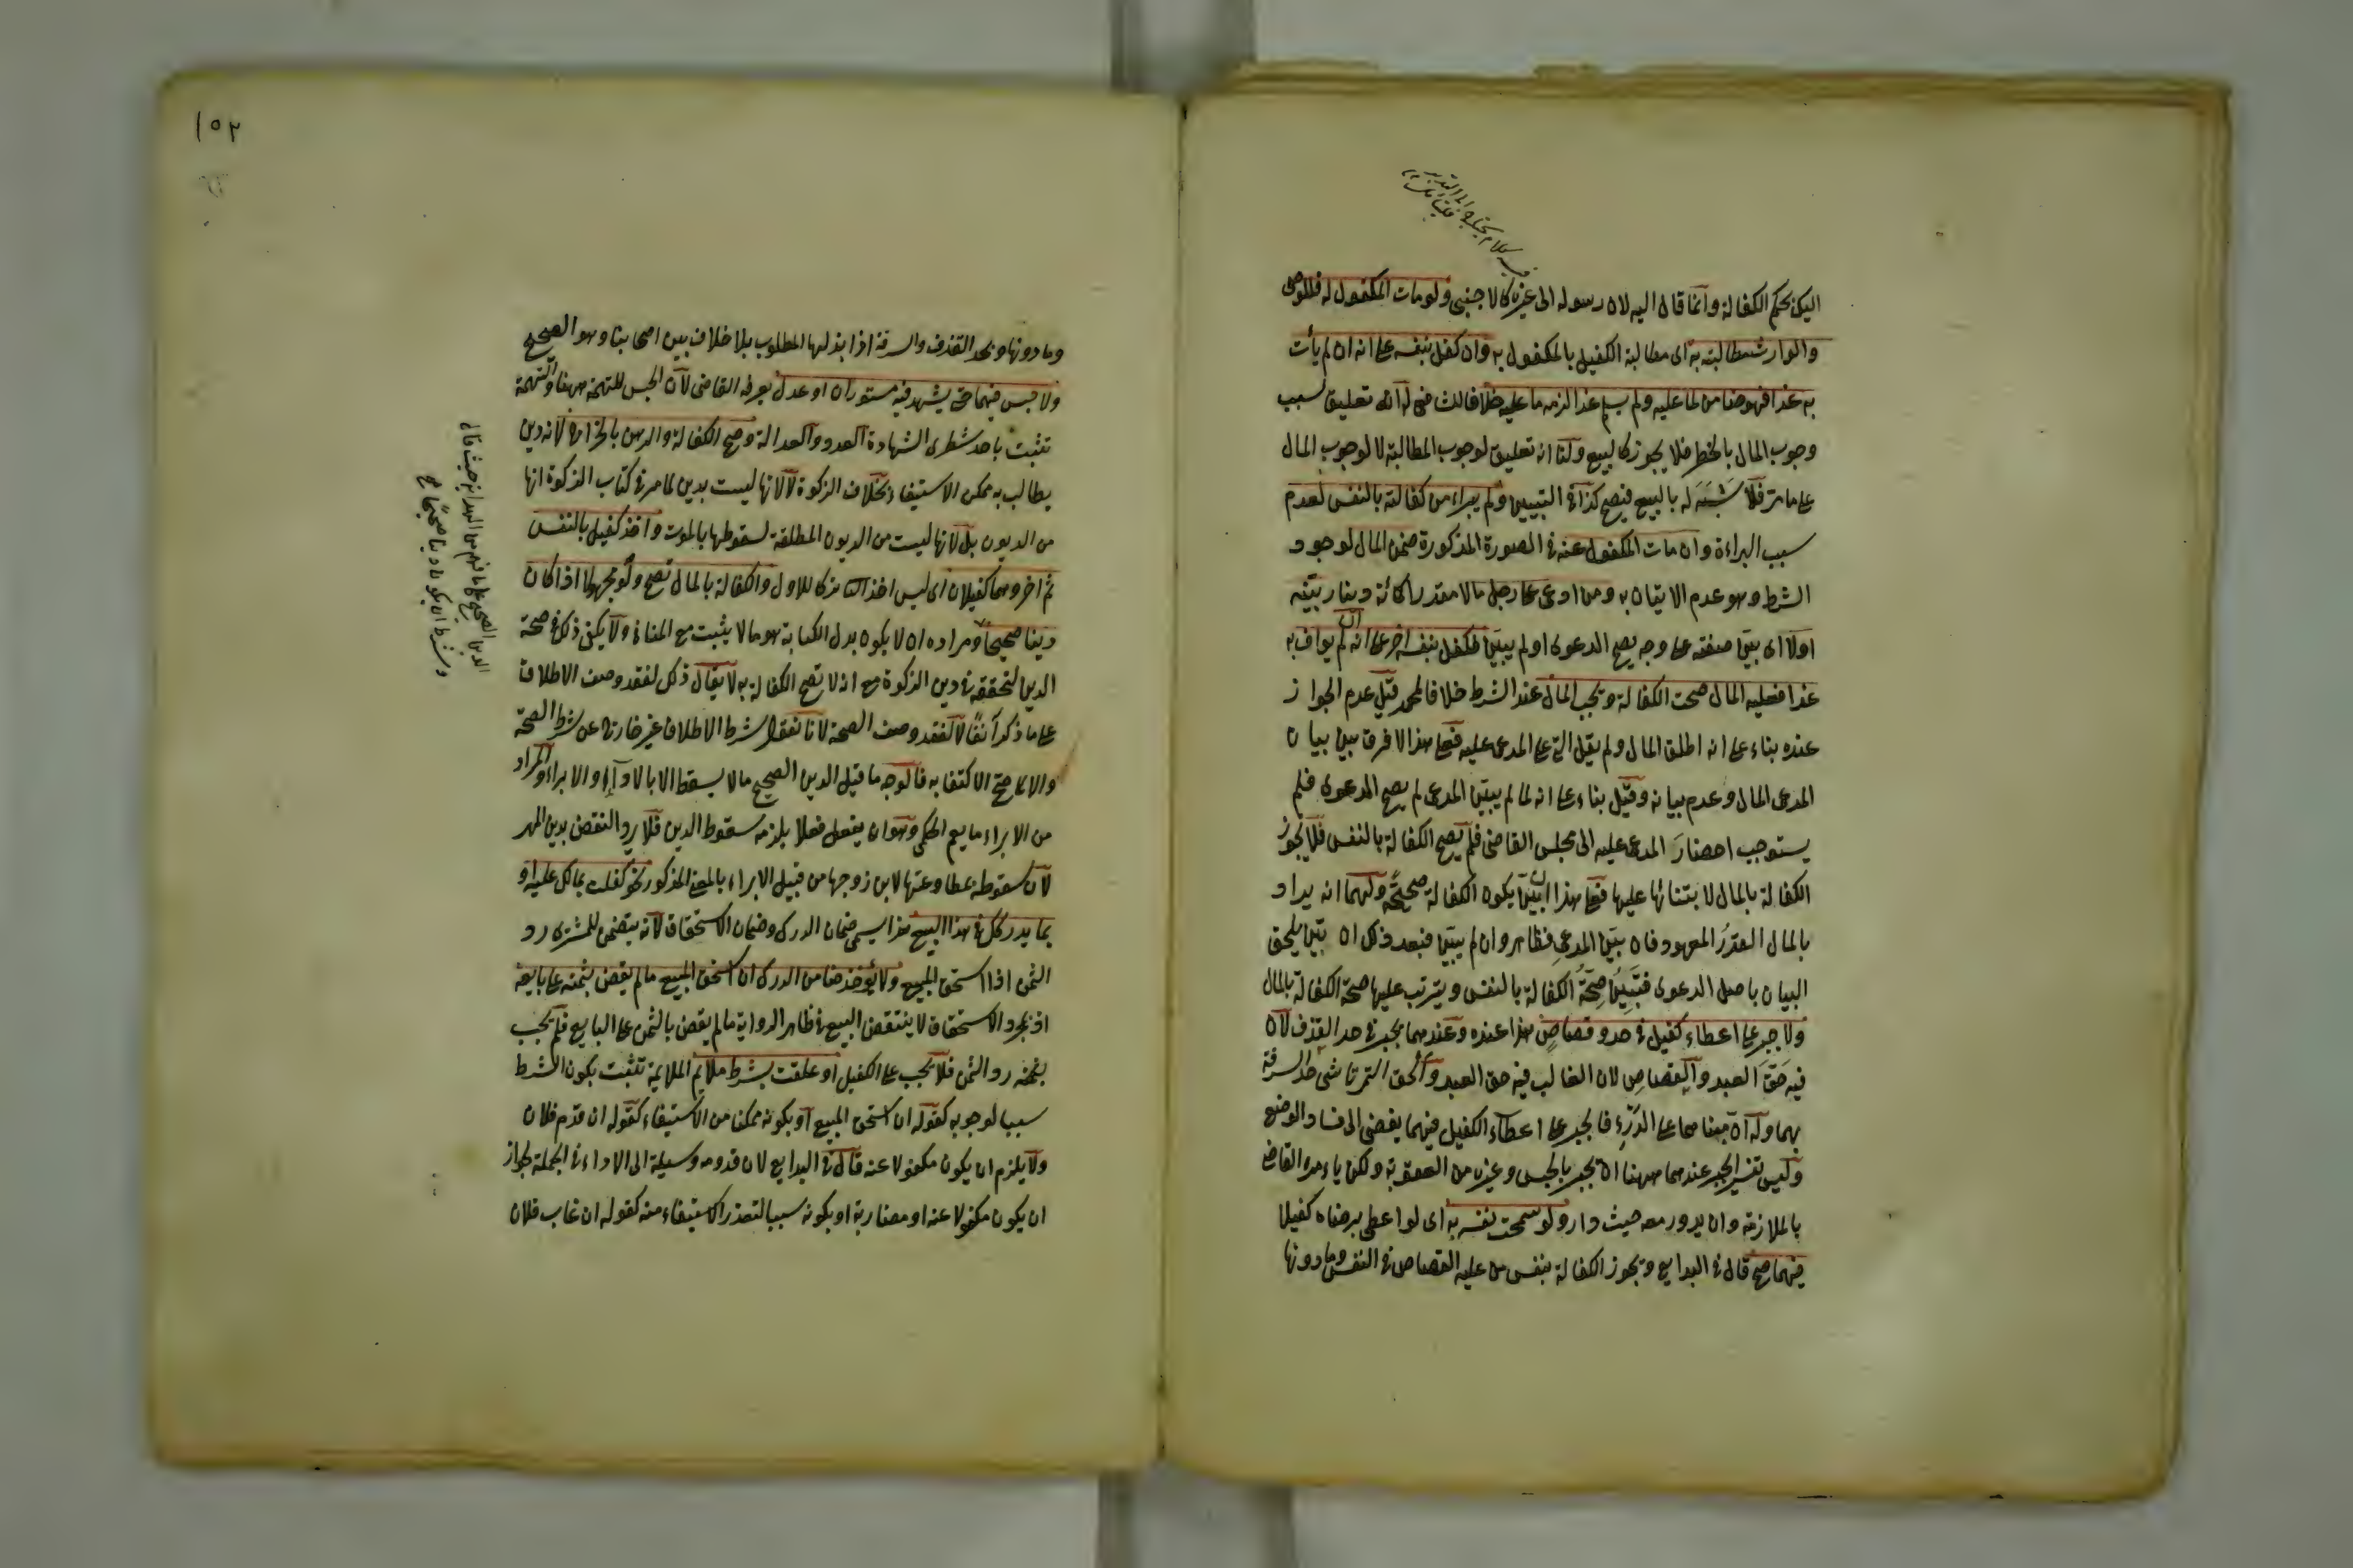 اليك بحكم الكفالة وانما قال اليه لان رسوله الى غيره كالاجنبى ولو مات المكفول له فللوصى
والوارث مطالبته به اى مطالبة الكفيل بالمكفول به وان كفل بنفسه على انه ان لم يأت
به غدا فهو ضامن لما عليه ولم يسلم غدا لزمه ما عليه خلافا للشافعى له انه تعليق سبب
وجوب المال بالخطر فلا يجوز كالبيع ولنا انه تعليق لوجوب المطالبة لا لوجوب المال
على ما مر فلا شبه له بالبيع فيصح كذا فى التبيين ولم يبراء من كفالته بالنفس لعدم
سبب البراءة وان مات المكفول عنه فى الصورة المذكورة ضمن المال لوجود
الشرط وهو عدم الاتيان به ومن ادعى على رجل مالا مقدرا كمائة دينار بينه
اولا اى بين صفته على وجه يصح الدعوى او لم يبين فكفل بنفسه اخر على انه ان لم يواف به
غدا فعليه المال صحت الكفالة ويجب المال عند الشرط خلافا لمحمد قيل عدم الجواز
عنده بناء على انه اطلق المال ولم يقل التى على المدعى عليه فعلى هذا لا فرق بين بيان
المدعى المال وعدم بيانه وقيل بناء على انه لما لم يبين المدعى لم يصح الدعوى فلم
يستوجب احضار المدعى عليه الى مجلس القاضى فلم يصح الكفالة بالنفس فلا يجوز
الكفالة بالمال لابتنائها عليها فعلى هذا ان بين يكون الكفالة صحيحة ولهما انه يراد
بالمال المقدر المعهود فان بين المدعى فظاهر وان لم يبين فبعد ذلك ان بين يلحق
البيان باصل الدعوى فتبين صحة الكفالة بالنفس ويترتب عليها صحة الكفالة بالمال
ولا جبر على اعطاء كفيل فى حد وقصاص هذا عنده وعندهما يجبر فى حد القذف لان
فيه حق العبد والقصاص لان الغالب فيه حق العبد والحق التمرتاشى حد السرقة
بهما وله ان مبناهما على الدرء فالجبر على اعطاء الكفيل فيهما يفضى الى فساد الوضع
وليس تفسير الجبر عندهما ههنا ان يجبر بالحبس وغيره من العقوبة ولكن يامره القاضى
بالملازمة وان يدور معه حيث دار ولو سمحت نفسه به اى لو اعطى برضاه كفيلا
فيهما صح قال فى البدايع ويجوز الكفالة بنفس من عليه القصاص فى النفس وما دونها
١٥٢
وما دونها وبحد القذف والسرقة اذا بذلها المطلوب بلا خلاف بين اصحابنا وهو الصحيح
ولا حبس فيهما حتى يشهد فيه مستوران او عدل يعرفه القاضى لان الحبس للتهمة ههنا والتهمة
تثبت باحد شطرى الشهادة العدد والعدالة وصح الكفالة والرهن بالخراج لانه دين
يطالب به ممكن الاستيفاء بخلاف الزكوة لا لانها ليست بدين لما مر فى كتاب الزكوة انها
من الديون بل لانها ليست من الديون المطلقة لسقوطها بالموت واخذ كفيل بالنفس
ثم اخر وهما كفيلان اى ليس اخذ الثانى تركا للاول والكفالة بالمال تصح ولو مجهولا اذا كان
دينا صحيحا ومراده ان لا يكون بدل الكتابة هو ما لا يثبت مع المنافى ولا يكفى ذلك فى صحة
الدين لتحققه فى دين الزكوة مع انه لا تصح الكفالة به لا يقال ذلك لفقد وصف الاطلاق
على ما ذكر آنفا لا لفقد وصف الصحة لانا نقول شرط الاطلاق غير خارج عن شرط الصحة
والا لما صح الاكتفا به فالوجه ما قيل الدين الصحيح ما لا يسقط الا بالاداء او الابراء والمراد
من الابراء ما يعم الحكمى وهو ان يفعل فعلا يلزمه سقوط الدين فلا يرد النقض بدين المهر
لان سقوطه بمطاوعتها لابن زوجها من قبيل الابراء بالمعنى المذكور نحو كفلت بمالك عليه او
بما يدركك فى هذا البيع هذا يسمى ضمان الدرك وضمان الاستحقاق لانه يتضمن للمشترى رد
الثمن اذا استحق المبيع ولا يؤخذ ضامن الدرك ان استحق المبيع ما لم يقض بثمنه على بايعه
اذ بمجرد الاستحقاق لا ينتقض البيع فى ظاهر الرواية ما لم يقض بالثمن على البايع فلم يجب
بفسخه رد الثمن فلا يجب على الكفيل او علقت بشرط ملايم الملايمة تثبت بكون الشرط
سببا لوجوبه كقوله ان استحق المبيع او بكونه ممكنا من الاستيفاء كقوله ان قدم فلان
ولا يلزم ان يكون مكفولا عنه قال فى البدايع لان قدومه وسيلة الى الاداء فى الجملة لجواز
ان يكون مكفولا عنه او مضاربة او بكونه سببا لتعذر الاستيفاء منه كقوله ان غاب فلان
الدين الصحيح على ما فهم من الهداية حيث قال
وشرط ان يكون دينا صحيحا